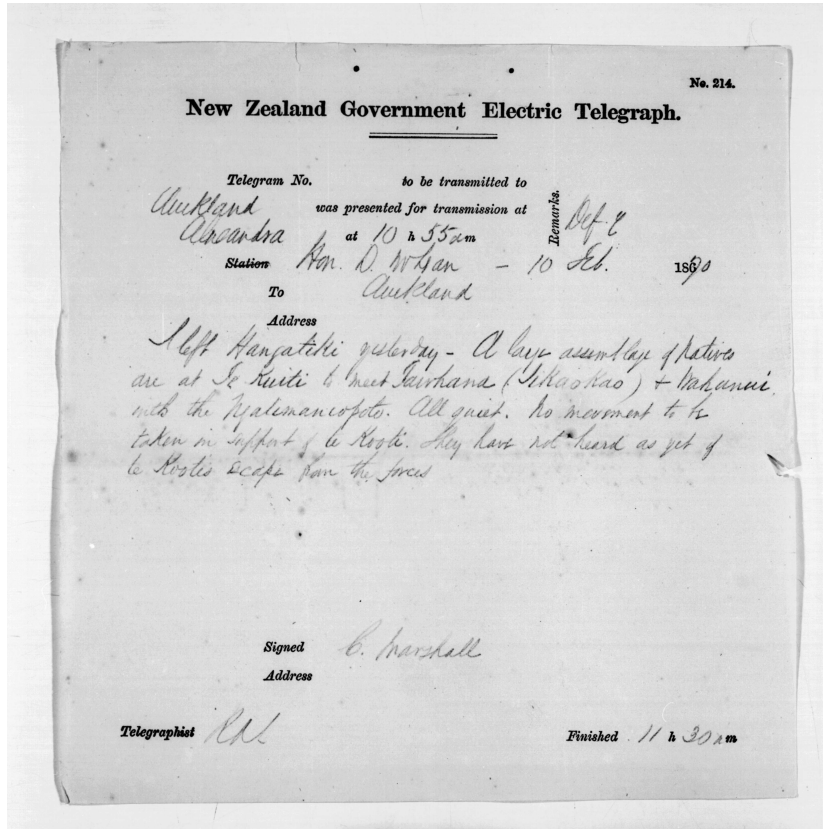 No. 214.
New Zealand Government Electric Telegraph.
Telegram No. to be transmitted to
Auckland was presented for transmission at
Alexandra at 10 h 55 am
Remarks.
Station Hon. D. McLean - 10 Feb. 1870
To Auckland
Address
I left Hangatiki yesterday - A large assemblage of Natives
are at Te Kuiti to meet Tawhana (Tikaokao) & Wahanui
with the Ngatimaniopoto. All quiet. No movement to be
taken in support of te Kooti. They have not heard as yet of
te Kootis escape from the forces
Signed C. Marshall
Address
Telegraphist
Finished 11 h 30 am